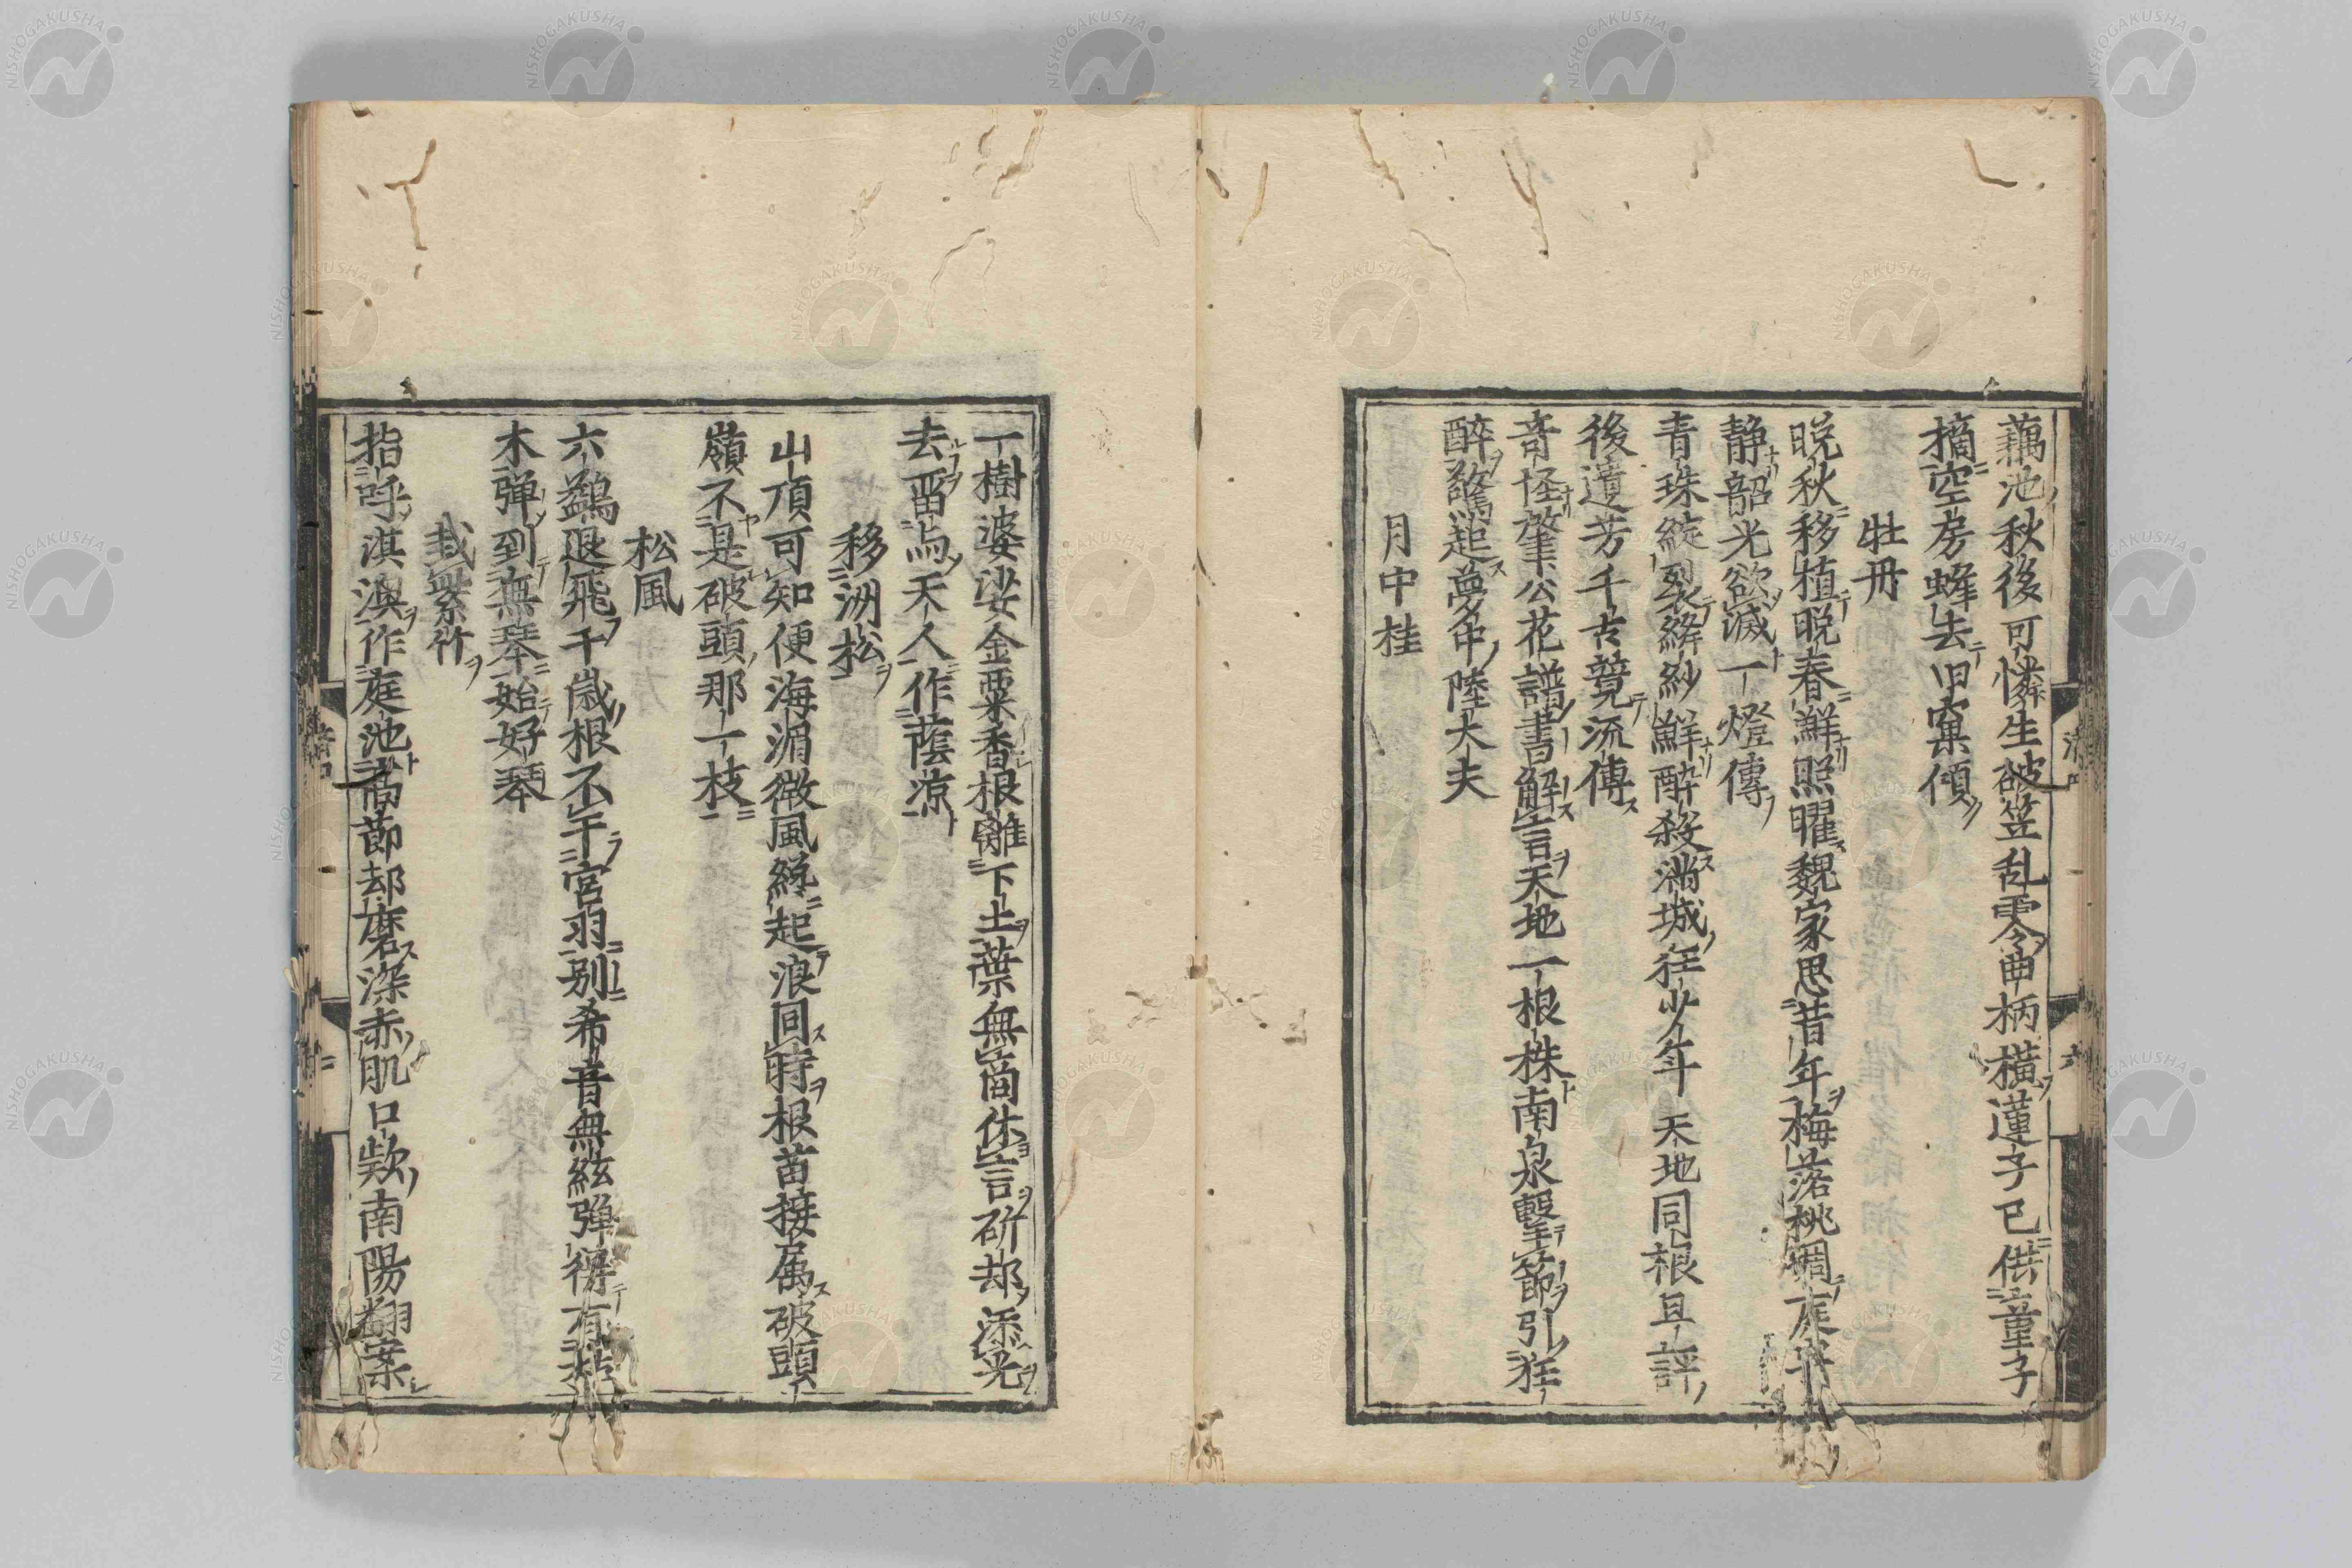 藕池秋後可憐生破笠乱零曲柄横蓮子已供童子
摘空房蜂去旧窠傾
牡丹
晩秋移植晩春鮮照曜魏家思昔年梅落桃凋庭
静韶光欲滅一燈傳
青珠綻裂絳紗鮮酔殺満城狂少年天地同根且評
後遺芳千古競流傳
奇怪肇公花譜書解言天地一根株南泉擊節引狂
酔驚起夢中陸大夫
月中桂
一樹婆娑金粟香根離下土葉無箇休言斫却添光
去畱為天人作蔭凉
移洲松
山頂可知便海湄微風終起浪同時根苗接属破頭
嶺不是破頭那一枝
松風
六鷁退飛千歳根不干宮羽別希音無絃弾得有
木弾到無琴始好琴
栽紫竹
指呼淇澳作庭池高節却磨深赤肌口欵南陽翻案